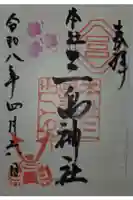 奉拝
本社
三島神社
令和八年四月
日